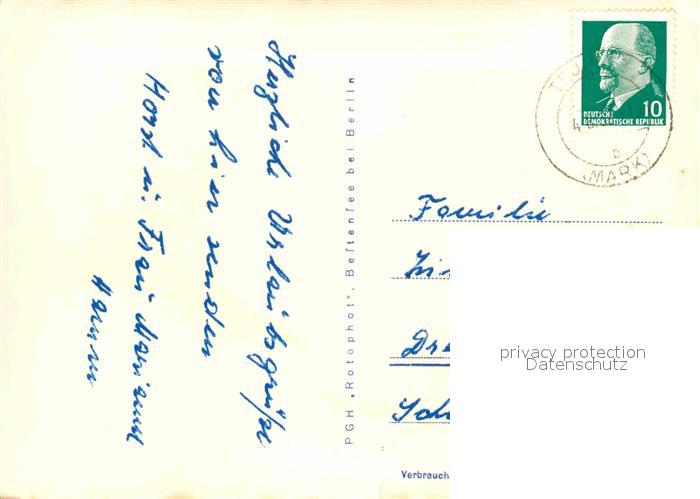 Herzliche Urlaubsgrüße
von hier senden
Horst u. Frau Marianne
PGH „Rotophot“, Bestensee bei Berlin
DEUTSCHE
DEMOKRATISCHE REPUBLIK
10
(MARK)
Familie
Verbrauch
privacy protection
Datenschutz